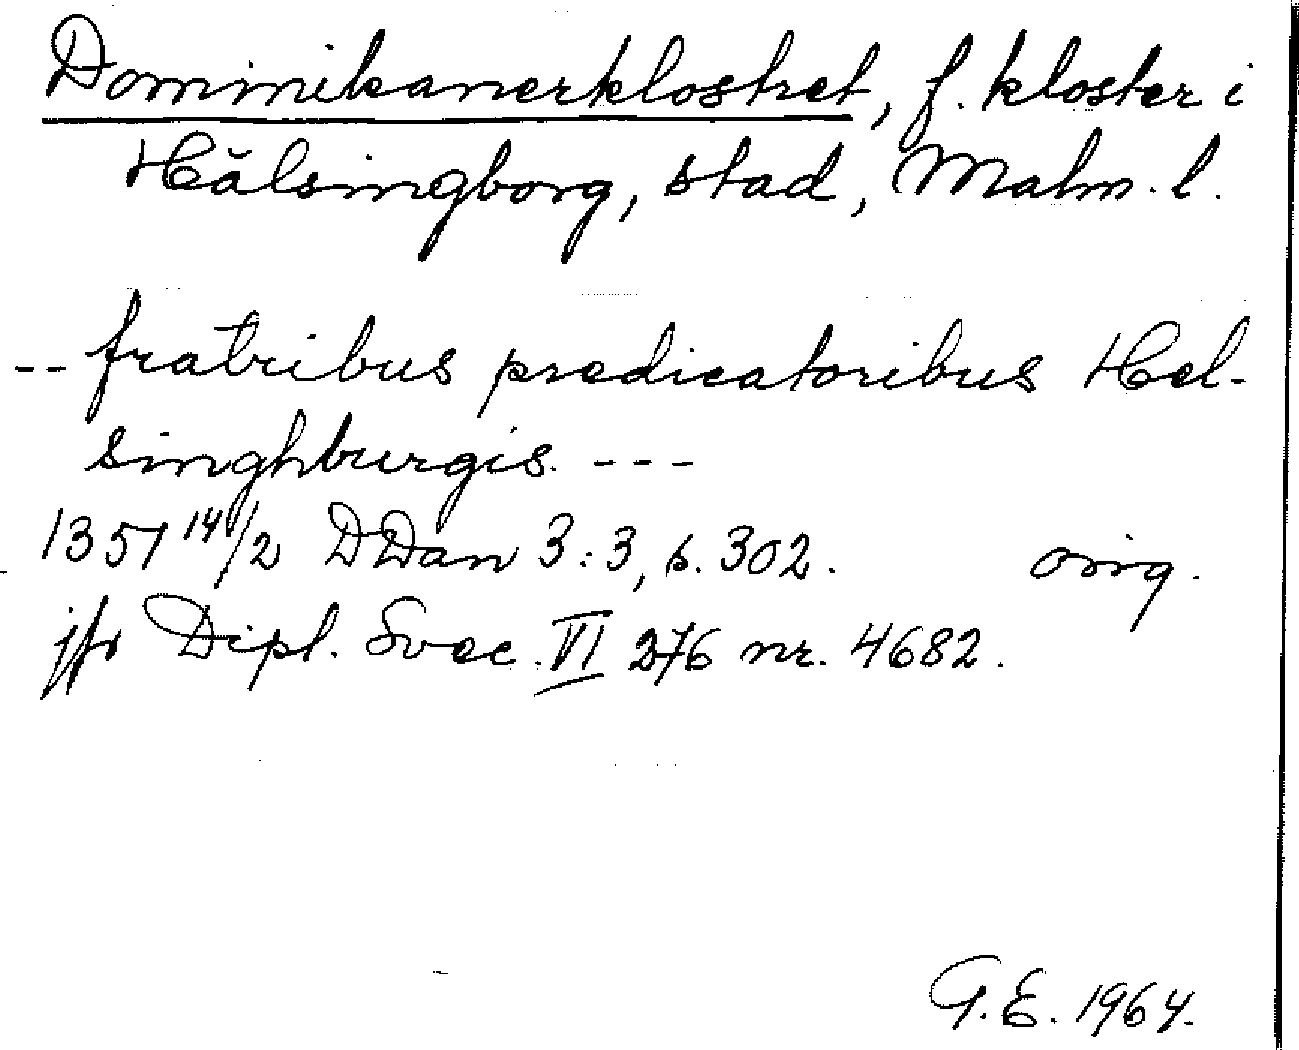 Dominikanerklostret, f. kloster i
Hälsingborg, stad, Malm. l.
-- fratribus predicatoribus Hel-
singhburgis. ---
1351 14/2 DDan 3:3, s. 302. orig.
jfr Dipl. Svec. VI 276 nr. 4682.
G. E. 1964.